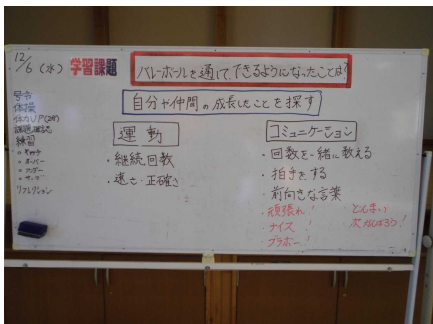 12/6(水) 学習課題
バレーボールを通して、できるようになったことは?
自分や仲間の成長したことを探す
号令
体操
体力UP(2分)
課題確認
練習
○キャッチ
○オーバー
○アンダー
○サーブ
リフレクション
運動
・継続回数
・速さ・正確さ
コミュニケーション
・回数を一緒に数える
・拍手をする
・前向きな言葉
・頑張れ!
・ナイス!
・ブラボー!
どんまい
次がんばろう!